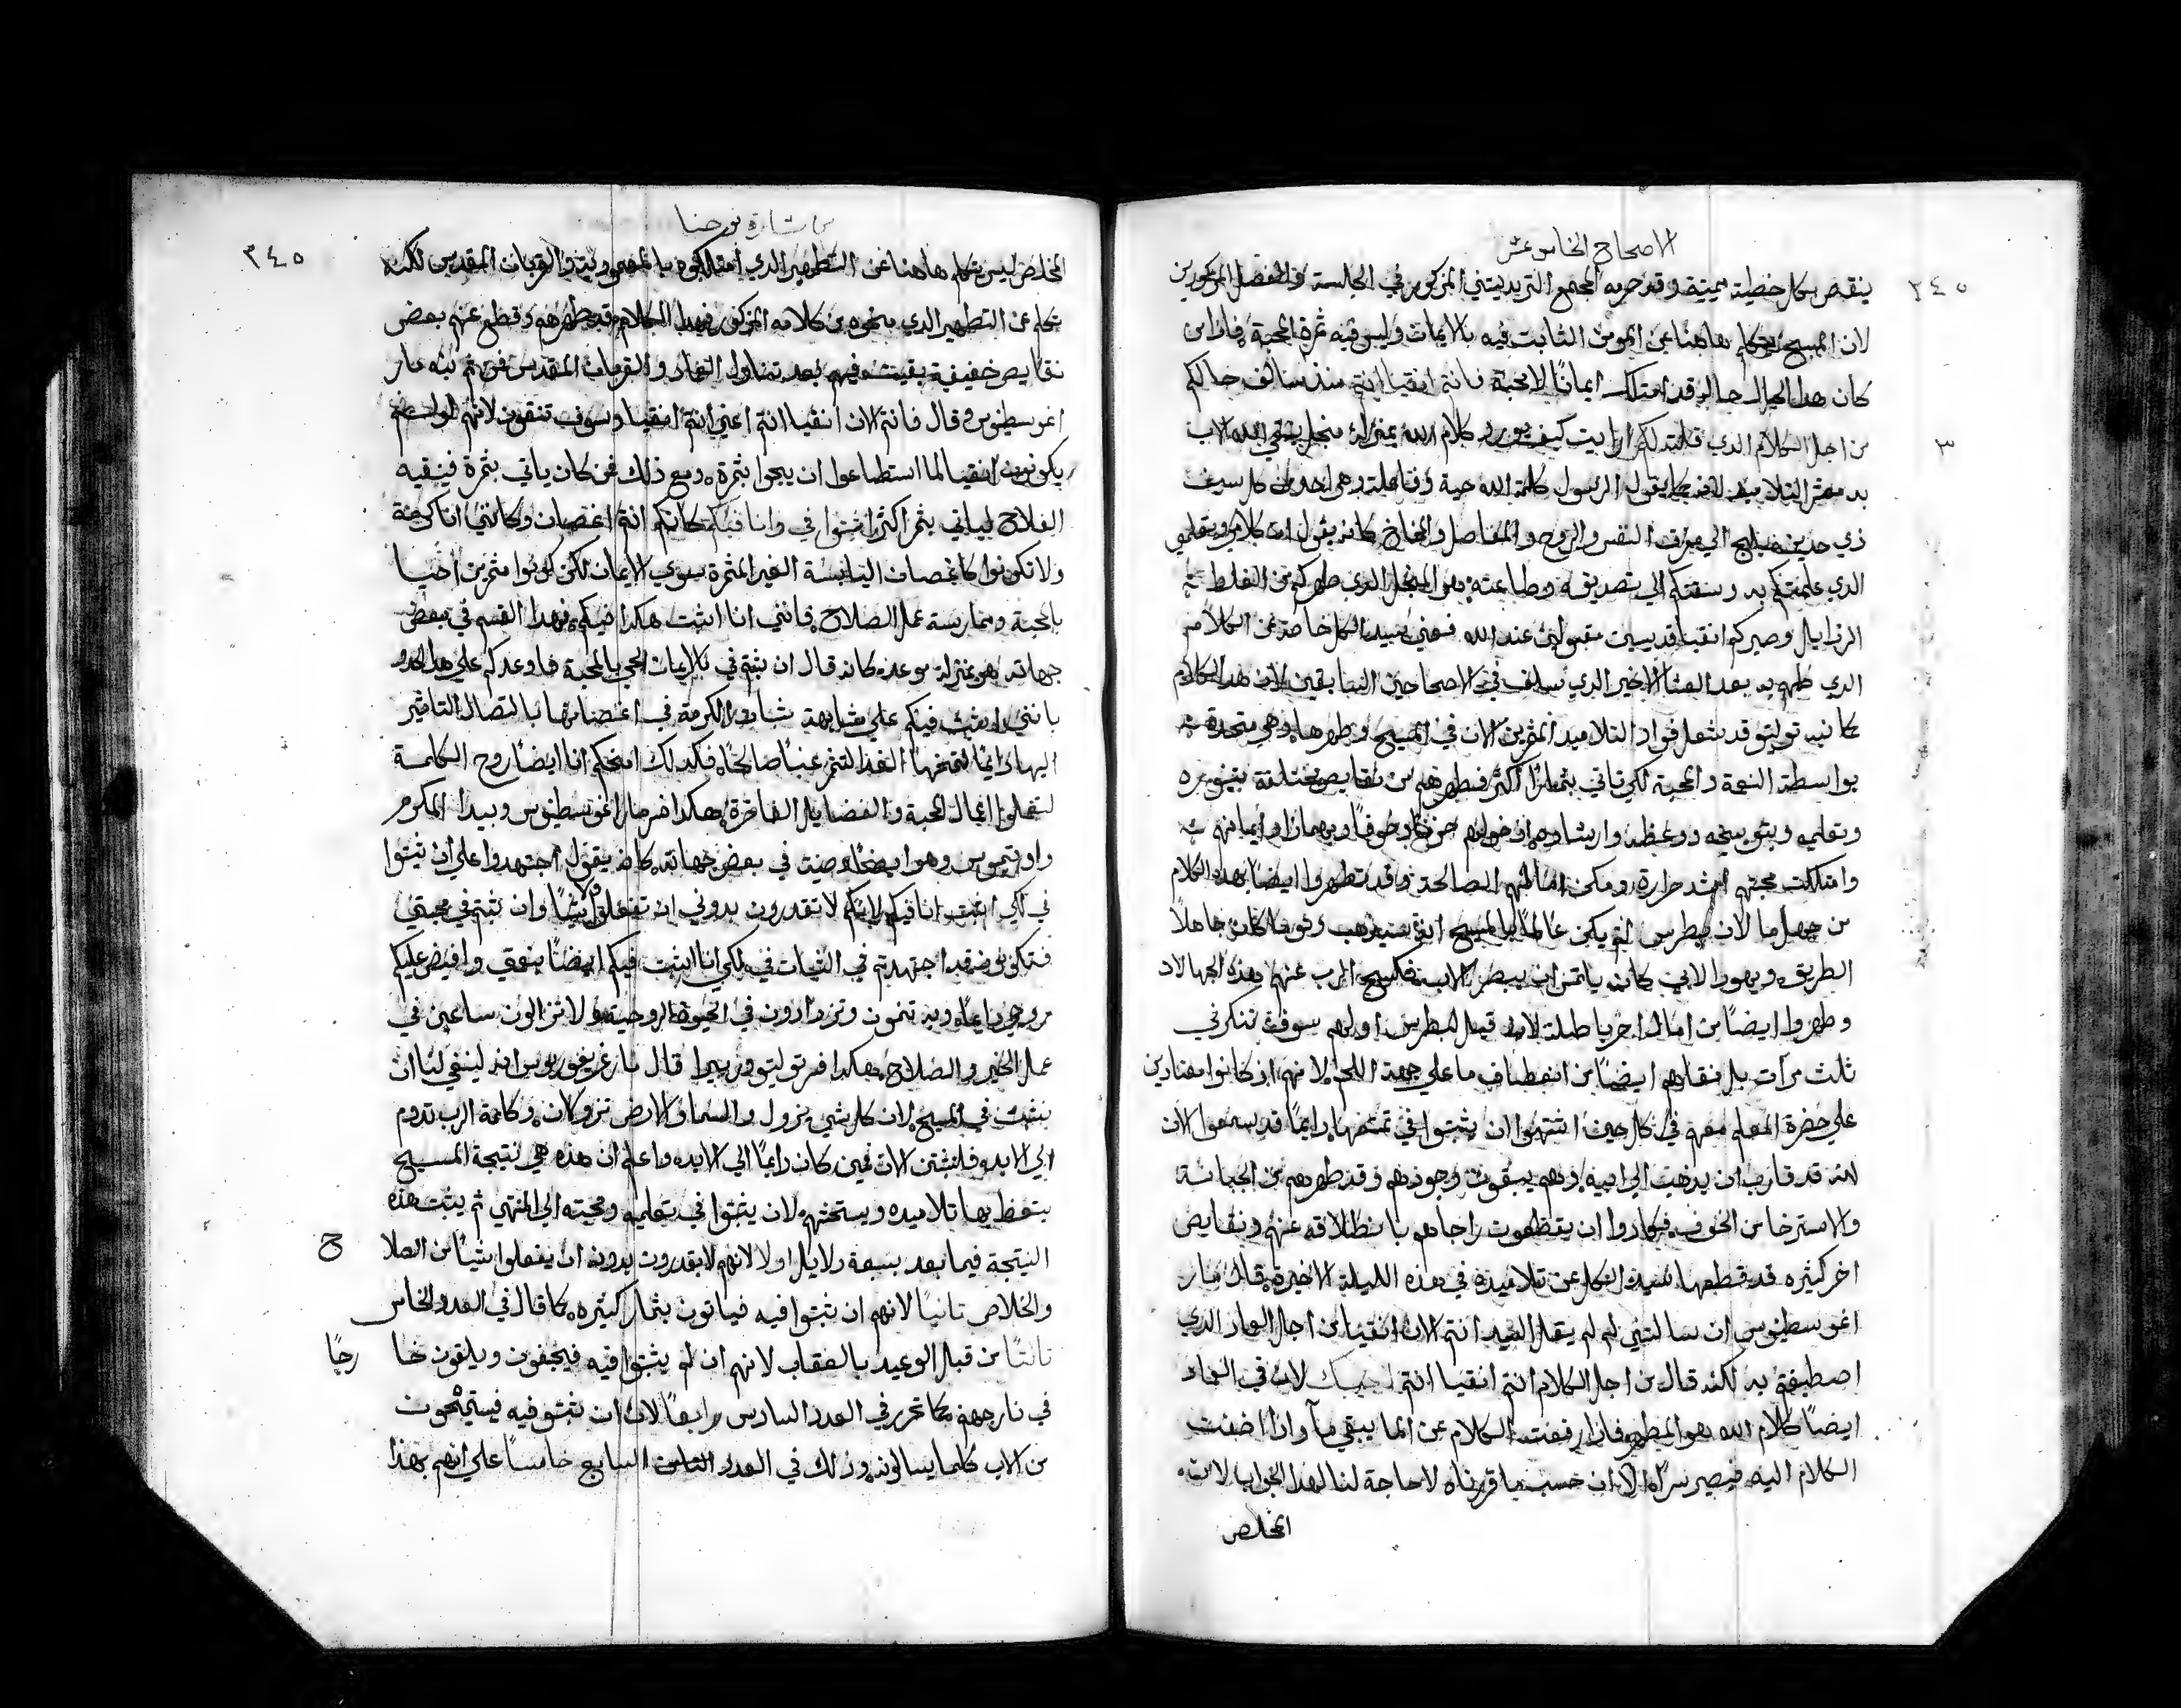 الاصحاح الخامس عشر
٢٤٥
ينقص بكل خطية مميتة وقد حرمه المجمع التريدنتيني المذكور في الجلسة والفصل المذكورين
لان المسيح يتكلم هاهنا عن المومن الثابت فيه بالايمان وليس فيه ثمرة المحبة فاذا من
كان هذا الحال حاله قد امتلك ايمانًا لا محبة فانتم انقيا انتم منذ سالف حالكم
٣
من اجل الكلام الذي قلته لكم ارايت كيف يورد كلام الله بمنزلة منجل ينقي الله الاب
به معشر التلاميذ كما يقول الرسول كلمة الله حية وفاعلة وهي احد من كل سيف
ذي حدين يبلج الي مفرق النفس والروح والمفاصل والمخاخ كانه يقول ان كلامي وتعليمي
الذي علمتكم به وسقتكم الي تصديقه وطاعته هو المنجل الذي طهركم من الغلط
الرذايل وصيركم انقيا قديسين مقبولين عند الله فعني سيد الكل خاصة عن الكلام
الذي طهرهم به بعد العشا الاخير الذي سلف في الاصحاحين السابقين لان هذا الكلام
كانبه توليتو قد شعل فواد التلاميذ المفرين الان في المسيح وطهرها وهي متحدة
بواسطة النعمة والمحبة لكي تاتي بثمار اكثر فطهرهم من نقايص مختلفة بتنويره
وتعليمه وبتوبيخه ووعظه وارشاده
وامتلكت محبتهم اشد حرارة ومكن امالهم الصالحة وقد تطهروا ايضًا بهذا الكلام
من جهل ما لان بطرس لم يكن عالمًا بالمسيح اين سيذهب وتوما كان جاهلًا
الطريق ويهوذا لابي كان يلتمس ان يبصر الاب فكسح الرب عنهم هذه الجهالات
وطهروا ايضًا من امال اخر باطلة لانه قيل لبطرس اولهم سوف تنكرني
ثلث مرات بل نقاهم ايضًا من انعطاف ما علي جهة اللحم لانهم اذ كانوا معتادين
علي حضرة المعلم معهم في كل حين اشتهوا ان يثبتوا في تمتعها دايمًا قد سمعوا الان
انه قد قارب ان يذهب الي ابيه وهم يبقون وحدهم وقد طهرهم من الجبانة
والاسترخا من الخوف فكادوا ان يتقطعوا باطلاقه عنهم ونقايص
اخر كثيره قد قطعها سيد الكل عن تلاميذه في هذه الليلة الاخيرة قال مار
اغوسطينوس ان سالتني لم لم يقل السيد انتم الان انقيا من اجل العماد الذي
اصطبغتم به لكنه قال من اجل الكلام انتم انقيا انتم اجبتك لان في الماء
ايضًا كلام الله هو المطهر فاذا رفعت الكلام عن الما يبقي مآ واذا اضفت
الكلام اليه فيصير سرًا الا ان حسب ما قررناه لا حاجة لنا لهذا الجواب لان
المخلص
بشارة يوحنا
٢٤٥
المخلص ليس يتكلم هاهنا عن التطهير الذي امتلكوه بالمعمودية والقربان المقدس لكنه
يتكلم عن التطهير الذي منحوه من كلامه المذكور فهذا الكلام قد طهرهم وقطع عنهم بعض
نقايص خفيفة بقيت فيهم بعد تناول العماد والقربان المقدس فمن ثم نبه مار
اغوسطينوس وقال فانتم الان انقيا انتم اعني انتم انقيا وسوف تنقون لانهم لو لم
يكونوا انقيا لما استطاعوا ان يجوا بثمرة ومع ذلك فمن كان ياتي بثمرة فينقيه
الفلاح لياتي بثمر اكثر اثبتوا في وانا فيكم كانكم انتم اغصان وكانني انا كرمة
ولا تكونوا كاغصان اليابسة الغير المثمرة بسوي الايمان لكن كونوا مثمرين احيا
بالمحبة وممارسة عمل الصلاح فانني انا اثبت هكذا فيكم فهذا القسم في بعض
جهاته هو بمنزلة موعده كانه قال ان ثبتم في بالايمان الحي بالمحبة فاوعدكم علي هذا الحدو
بانني اثبت فيكم علي مشابهة ثبات الكرمة في اغصانها باتصال التاثير
اليها دايمًا لتمنحها الغذا لتثمر عنبًا صالحًا فكذلك امنحكم انا ايضًا روح الكلمة
لتفعلوا اعمال المحبة والفضايل الفاخرة هكذا فسر مار اغوسطينوس وبيدا المكرم
واوتيموس وهو ايضًا وصية في بعض جهاته كانه يقول اجتهدوا علي ان تثبتوا
في لكي اثبت انا فيكم لانكم لا تقدرون بدوني ان تفعلوا شيًا وان ثبتم في محبتي
فتكونون قد اجتهدتم في الثبات في لكي انا اثبت فيكم ايضًا بنعمتي وافيض عليكم
روحي دايمًا وبه تنمون وتزدادون في الحيوة الروحية ولا تزالون ساعين في
عمل الخير والصلاح هكذا فسر توليتو وريبيرا قال مار غريغوريوس انه لينبغي لنا ان
نثبت في المسيح لان كل شي يزول والسما والارض تزولان وكلمة الرب تدوم
الي الابد فلنثبتن الان فمن كان دايمًا الي الابد واعلم ان هذه هي نتيجة المسيح
يتعظ بها تلاميذه ويستحثهم لان يثبتوا في تعليمه ومحبته الي المنتهي ثم يثبت هذه
النتيجة فيما بعد بسبعة دلايل اولا لانهم لا يقدرون بدونه ان يفعلوا شيًا من الصلا
ح
والخلاص ثانيًا لانهم ان ثبتوا فيه فياتون بثمار كثيره كما قال في العدد الخامس
ثالثًا من قبل الوعيد بالعقاب لانهم ان لم يثبتوا فيه فيجفون ويلقون خا
رجًا
في نار جهنم كما تحرر في العدد السادس رابعًا لان ان ثبتو فيه فيستمنحون
من الاب كلما يسالونه وذلك في العدد الثامن السابع خامسًا علي انهم بهذا